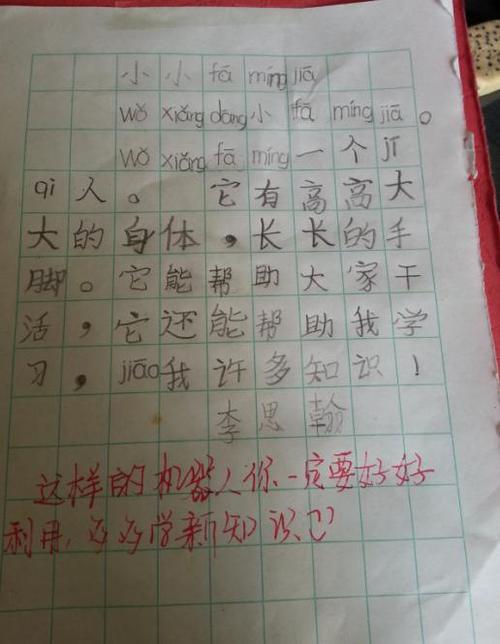 小小fā míng jiā
wǒ xiǎng dāng小fā míng jiā。
wǒ xiǎng fā míng一个jī
qì人。它有高高大
大的身体，长长的手
脚。它能帮助大家干
活，它还能帮助我学
习，jiāo我许多知识！
李思翰
这样的机器人你一定要好好
利用，多多学新知识巴